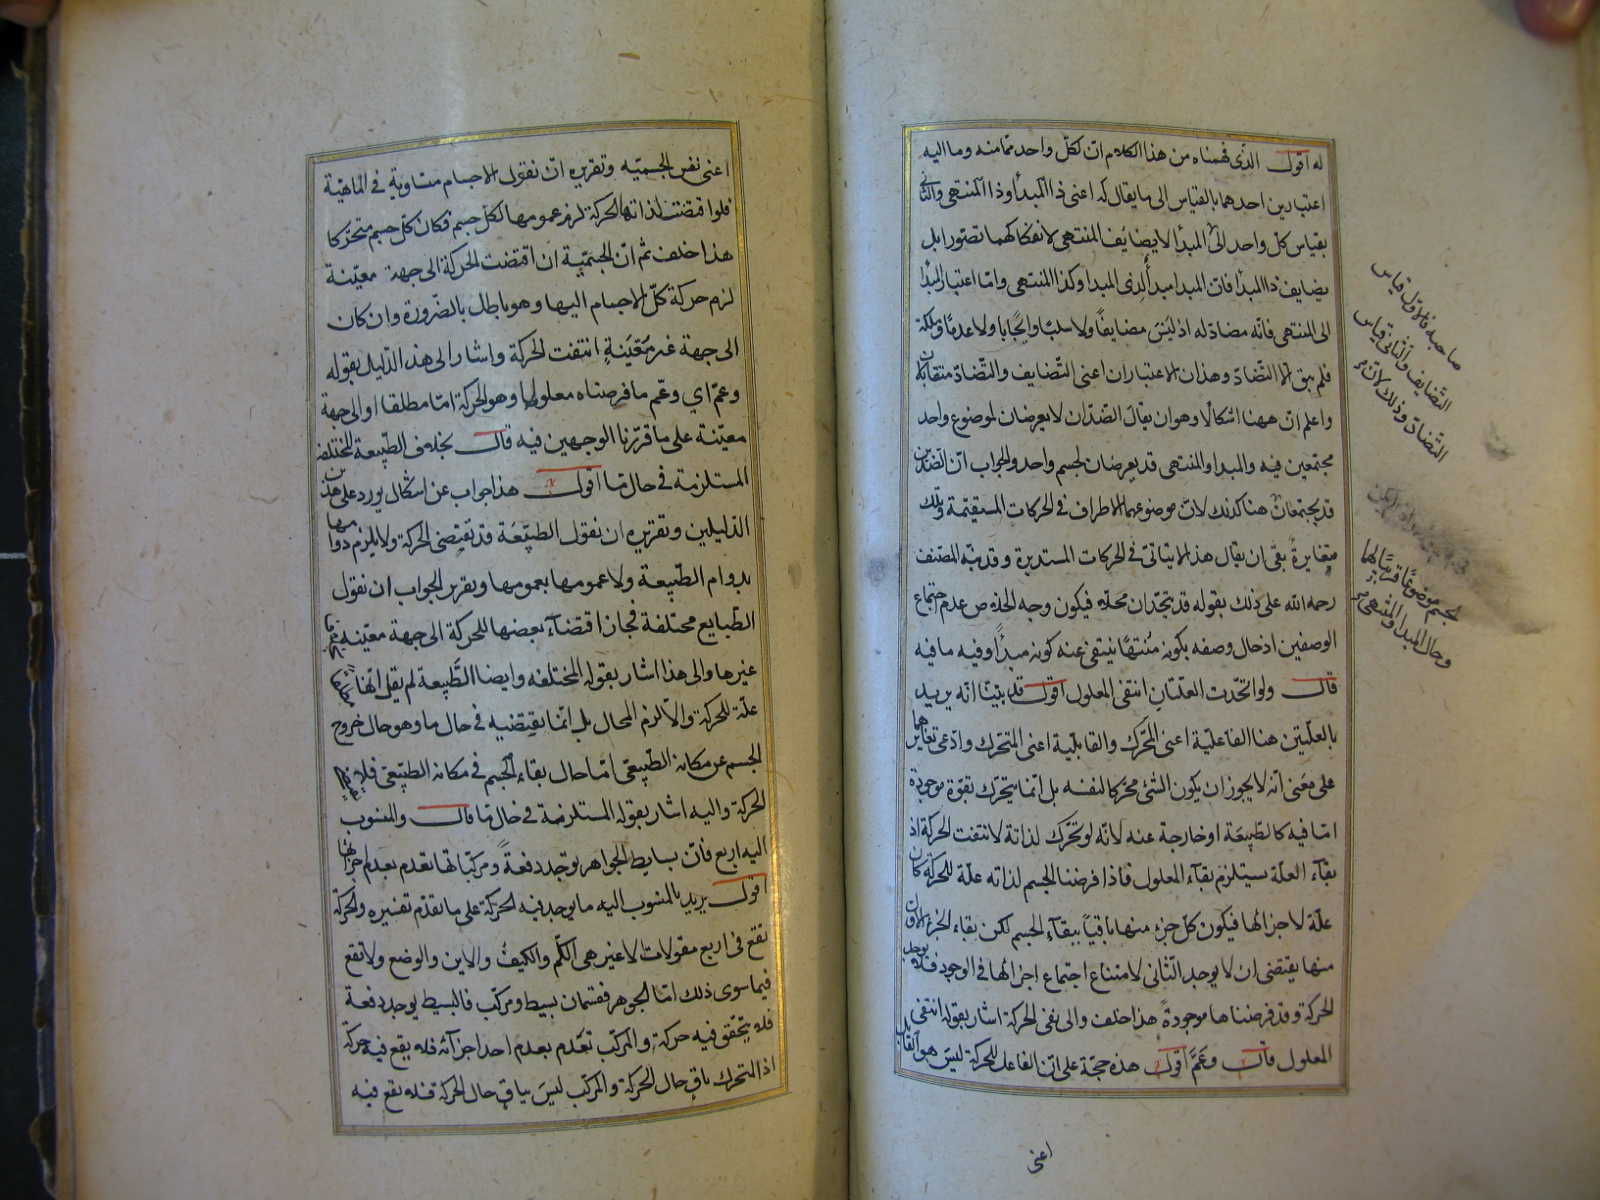 له اقول الذى فهمناه من هذا الكلام ان لكل واحد مما منه وما اليه
اعتبارين احدهما بالقياس الى ما يقال له اعنى ذا المبدأ وذا المنتهى والثانى
بقياس كل واحد الى المبدأ لا يضايف المنتهى لانفكاكهما تصورا بل
يضايف ذا المبدأ فان المبدا مبدأ لذى المبدا وكذا المنتهى واما اعتبار المبدأ
الى المنتهى فانه مضاد له اذ ليس مضايفا ولا سلبا وايجابا ولا عدما وملكة
فلم يبق الا التضاد وهذان الاعتباران اعنى التضايف والتضاد متقابلان
واعلم ان ههنا اشكالا وهو ان يقال الضدان لا يعرضان لموضوع واحد
مجتمعين فيه والمبدا والمنتهى قد يعرضان لجسم واحد والجواب ان الضدين
قد يجتمعان هنا كذلك لان موضوعهما الاطراف فى الحركات المستقيمة وتلك
متغايرة بقى ان يقال هذا لا يتاتى فى الحركات المستديرة وقد نبه المصنف
رحمه الله على ذلك بقوله قد يتحدان محلا فيكون وجه الخلاص عدم اجتماع
الوصفين اذ حال وصفه بكونه منتها ينتفى عنه كونه مبدأ وفيه ما فيه
قال ولو اتحدت العلتان انتفى المعلول اقول قد بينا انه يريد
بالعلتين هنا الفاعلية اعنى المحرك والقابلية اعنى المتحرك وادعى تغايرهما
على معنى انه لا يجوز ان يكون الشئ محركا لنفسه بل انما يتحرك بقوة موجودة
اما فيه كالطبيعة او خارجة عنه لانه لو تحرك لذاته لانتفت الحركة اذ
بقاء العلة سيتلزم بقاء المعلول فاذا فرضنا الجسم لذاته علة للحركة كان
علة لاجزائها فيكون كل جزء منها باقيا ببقاء الجسم لكن بقاء الجزء الاول
منها يقتضى ان لا يوجد الثانى لامتناع اجتماع اجزائها فى الوجود فلا يوجد
الحركة وقد فرضناها موجودة هذا خلف والى نفى الحركة اشار بقوله انتفى
المعلول قال وعم اقول هذه حجة على ان الفاعل للحركة ليس هو القابل
اعنى
صاحبه فالاول قياس
التضايف والثانى قياس
التضاد وذلك لان
لجسم موضوعا قريبا لها
وحال المبدا والمنتهى
اعنى نفس الجسميه وتقريره ان نقول الاجسام متساوية فى الماهية
فلو اقتضت لذاتها الحركة لزم عمومها لكل جسم فكان كل جسم متحركا
هذا خلف ثم ان الجسمية ان اقتضت الحركة الى جهة معينة
لزم حركة كل الاجسام اليها وهو باطل بالضرورة وان كان
الى جهة غير معينة انتفت الحركة واشار الى هذا الدليل بقوله
وعم اى وعم ما فرضناه معلولها وهو الحركة اما مطلقا او الى جهة
معينة على ما قررنا الوجهين فيه قال بخلاف الطبيعة المختلفه
المستلزمة فى حال ما اقول هذا جواب عن اشكال يورد على هذين
الدليلين وتقريره ان نقول الطبيعة قد تقتضى الحركة ولا يلزم دوامها
بدوام الطبيعة ولا عمومها بعمومها وتقرير الجواب ان نقول
الطبايع مختلفة فجاز اقتضاء بعضها للحركة الى جهة معينه
غيرها والى هذا اشار بقوله المختلفه وايضا الطبيعة لم يقل انها مطلقا
علة للحركة والا لزم المحال بل انما يقتضيه فى حال ما وهو حال خروج
الجسم عن مكانه الطبيعى اما حال بقاء الجسم فى مكانه الطبيعى فلا يقتضى
الحركة واليه اشار بقوله المستلزمة فى حال ما قال والمنسوب
اليه اربع فان بسايط الجواهر توجد دفعة ومركباتها تعدم بعدم اجزائها
اقول يريد بالمنسوب اليه ما يوجد فيه الحركة على ما تقدم تفسيره والحركة
تقع فى اربع مقولات لا غير هى الكم والكيف والاين والوضع ولا تقع
فيما سوى ذلك اما الجوهر فقسمان بسيط ومركب فالبسيط يوجد دفعة
فلا يتحقق فيه حركة والمركب تعدم بعدم احد اجزائه فلا يقع فيه حركة
اذ المتحرك باق حال الحركة والمركب ليس بباق حال الحركة فلا تقع فيه